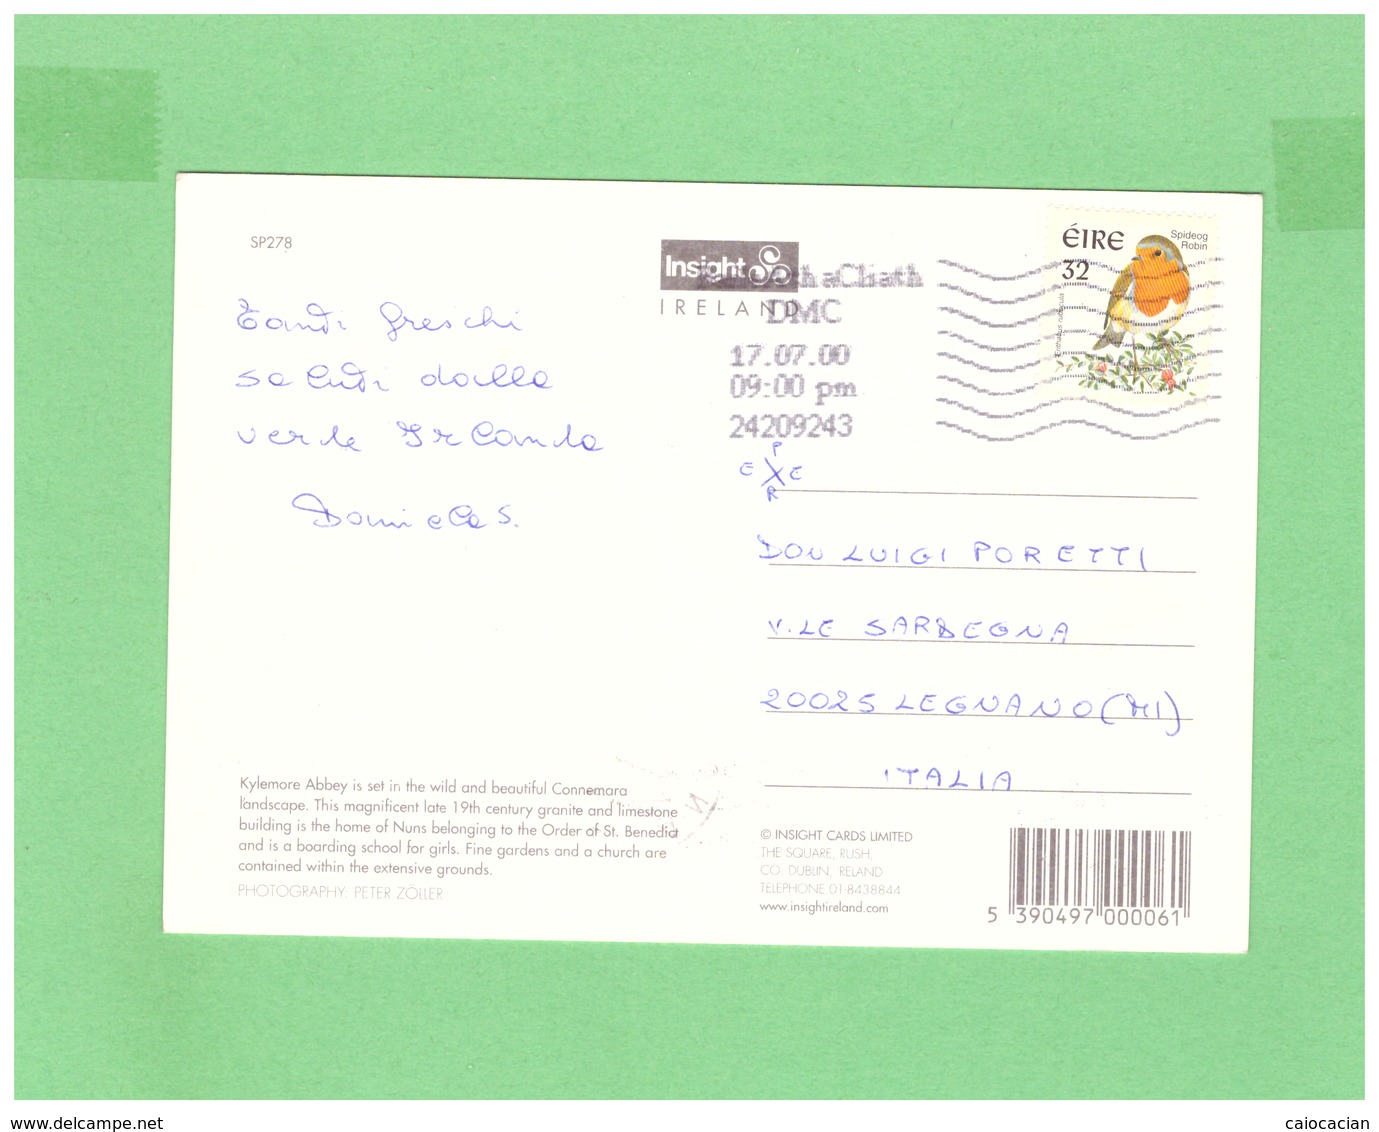 SP278
Insight
IRELAND
ÉIRE
32
Spideog
Robin
Erithacus rubecula
Áth aCliath
DMC
17.07.00
09:00 pm
24209243
Tanti freschi
saluti dalla
verde Irlanda
Daniela S.
E P E
R
DON LUIGI PORETTI
V.LE SARDEGNA
20025 LEGNANO (MI)
ITALIA
Kylemore Abbey is set in the wild and beautiful Connemara
landscape. This magnificent late 19th century granite and limestone
building is the home of Nuns belonging to the Order of St. Benedict
and is a boarding school for girls. Fine gardens and a church are
contained within the extensive grounds.
PHOTOGRAPHY: PETER ZÖLLER
© INSIGHT CARDS LIMITED
THE SQUARE, RUSH,
CO. DUBLIN, IRELAND
TELEPHONE 01-8438844
www.insightireland.com
5 390497 000061
www.delcampe.net
caiocacian